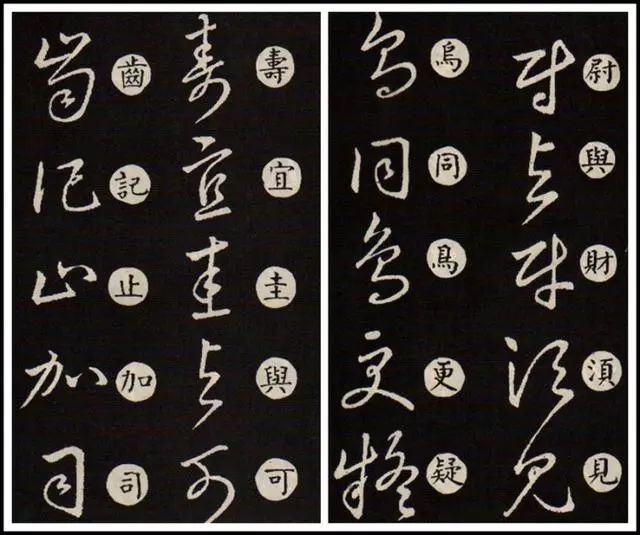 尉與財湏見
烏同鳥更疑
壽宜圭與可
齒記止加司